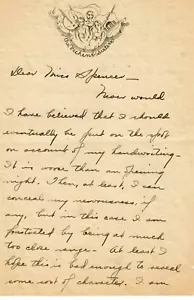 Dear Miss Spencer—
Never would
I have believed that I should
eventually be put on the spot
on account of my handwriting—
It is worse than an opening
night. Then, at least, I can
conceal my nervousness, if
any, but in this case I am
frustrated by being at much
too close range. At least I
hope this is bad enough to reveal
some sort of character. I am